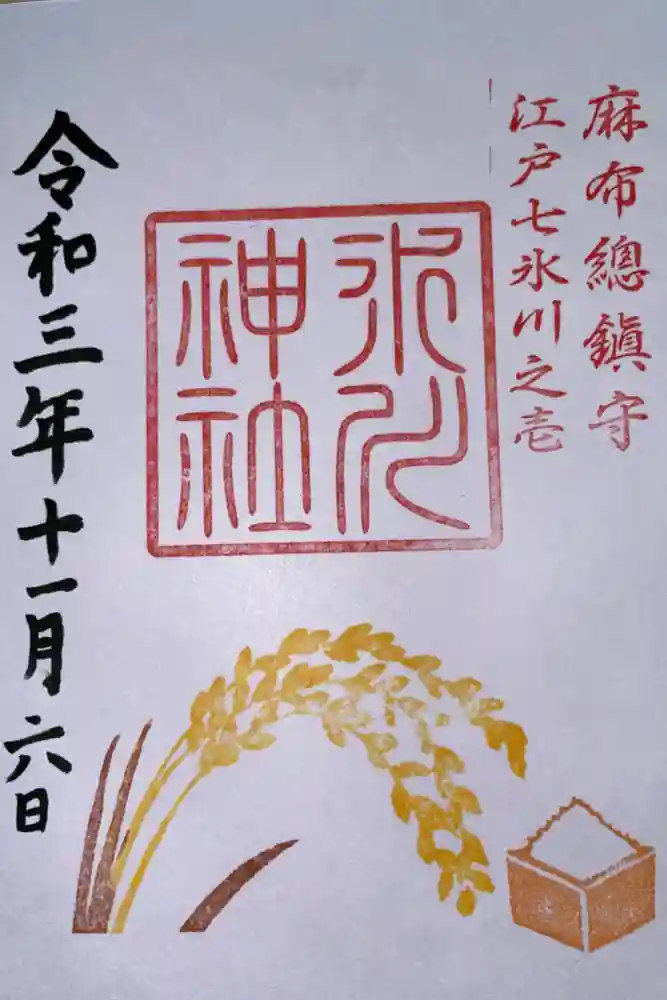 麻布總鎮守
江戸七氷川之壱
氷川
神社
令和三年十一月六日